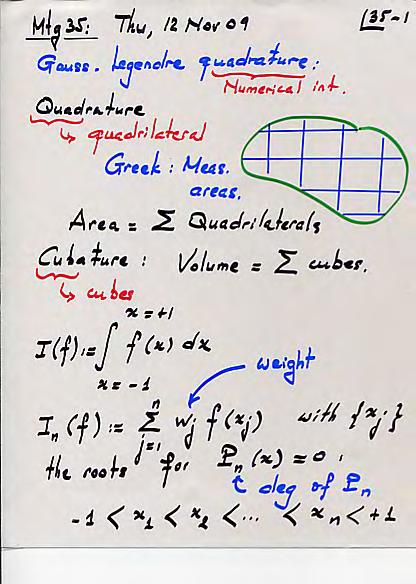 Mtg 35: Thu, 12 Nov 09 35-1
Gauss. Legendre quadrature:
Numerical int.
Quadrature
↳ quadrilateral
Greek: Meas.
areas.
Area = Σ Quadrilaterals
Cubature: Volume = Σ cubes.
↳ cubes
I(f) := ∫_{x=-1}^{x=+1} f(x) dx
weight
I_n(f) := Σ_{j=1}^{n} w_j f(x_j) with {x_j}
the roots for P_n(x) = 0.
↑ deg of P_n
-1 < x_1 < x_2 < ... < x_n < +1